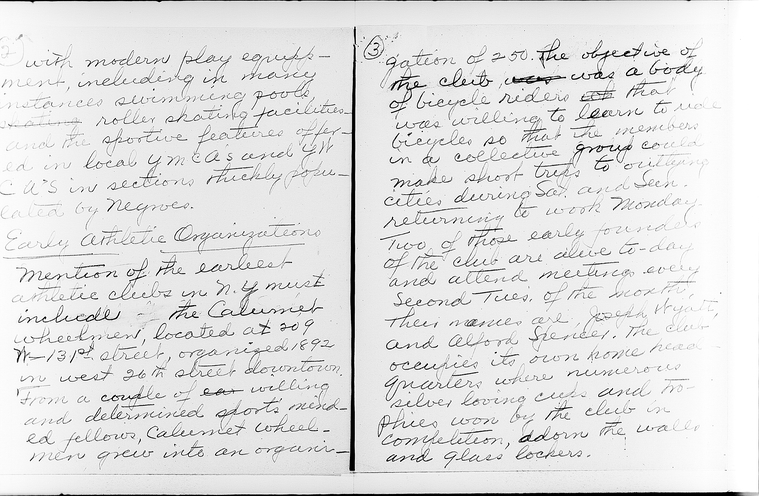 2
with modern play equipp-
ment, including in many
instances swimming pools,
skating roller skating facilities
and the sportive features offer-
ed in local YMCA's and YW
CA'S in sections thickly popu-
lated by Negroes.
Early Athletic Organizations
Mention of the earliest
athletic clubs in N.Y must
include - the Calumet
wheelmen, located at 209
W-131st street, organized 1892
in west 26th street downtown.
From a couple of willing
and determined sports mind-
ed fellows, Calumet wheel-
men grew into an organi-
3
gation of 250. The objective of
the club was was a body
of bicycle riders that
was willing to learn to ride
bicycles so that the members
in a collective group could
make short trips to outlying
cities during Sat. and Sun.
returning to work Monday.
Two of those early founders
of the club are alive to-day
and attend meetings every
Second Tues. of the month,
their names are Joseph Wyatt,
and Alford Spencer. The club
occupies its own home head-
quarters where numerous
silver loving cups and tro-
phies won by the club in
competition, adorn the walls
and glass lockers.